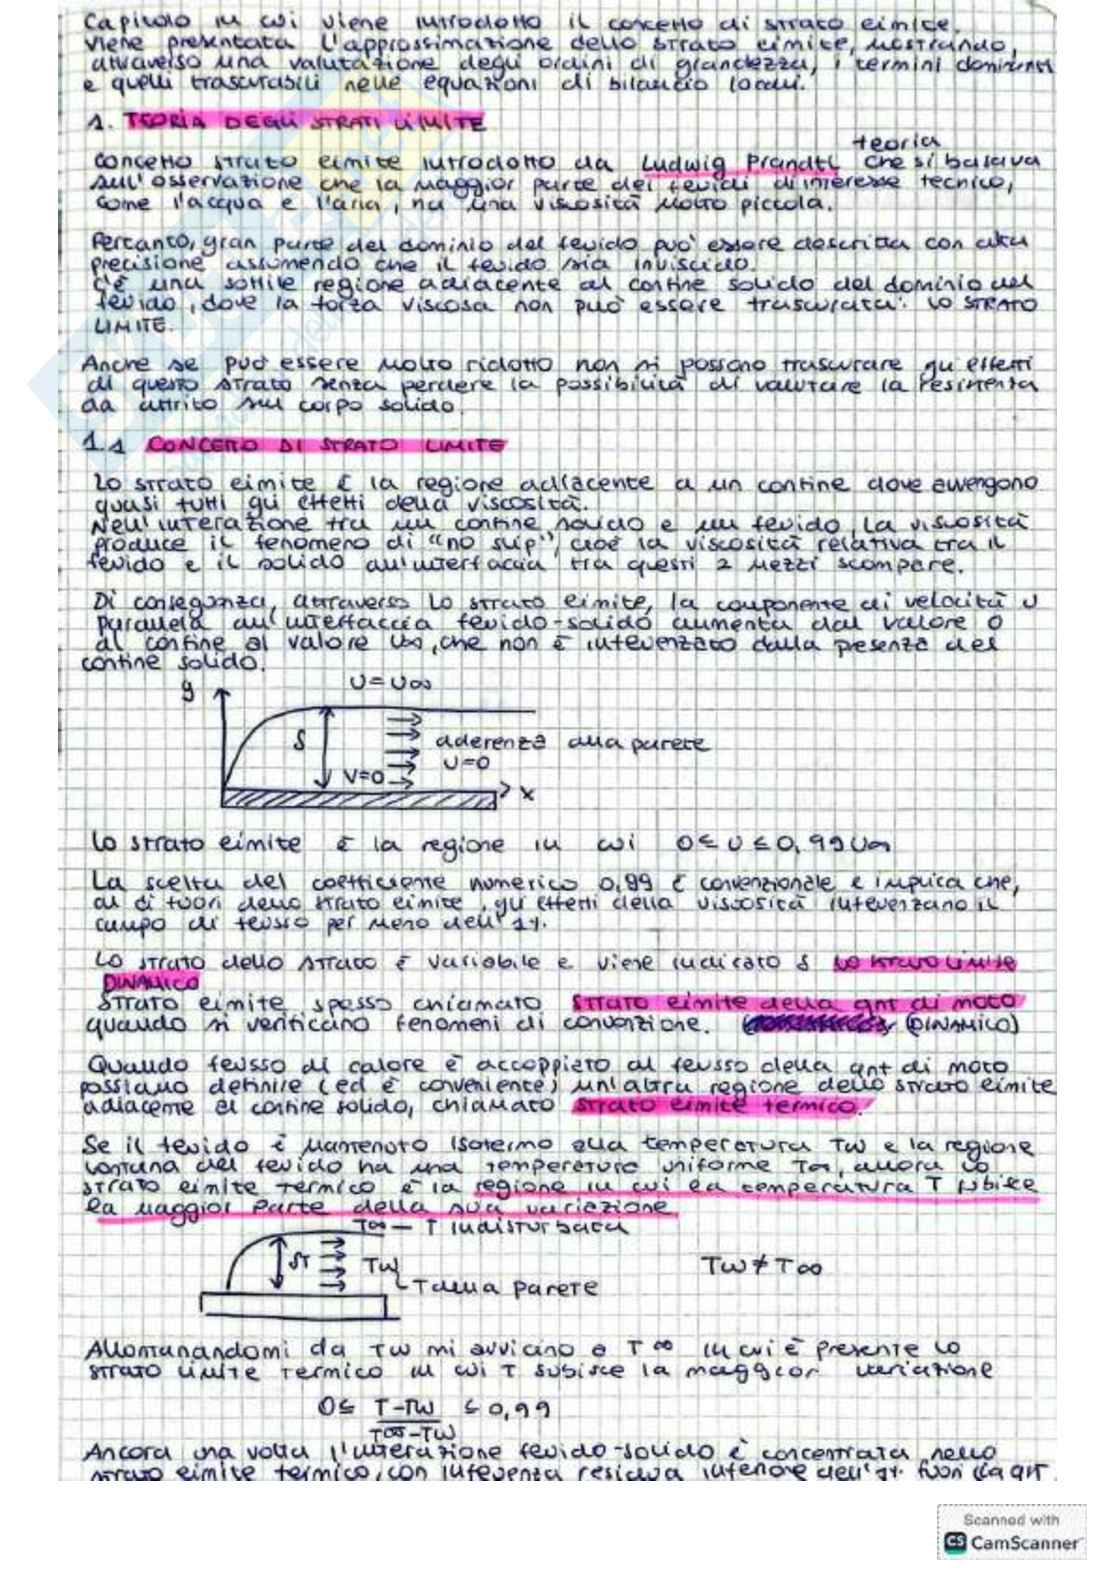 Capitolo in cui viene introdotto il concetto di strato limite.
Viene presentata l'approssimazione dello strato limite, mostrando,
attraverso una valutazione degli ordini di grandezza, i termini dominanti
e quelli trascurabili nelle equazioni di bilancio locali.
1. TEORIA DEGLI STRATI LIMITE
teoria
Concetto strato limite introdotto da Ludwig Prandtl che si basava
sull'osservazione che la maggior parte dei fluidi di interesse tecnico,
come l'acqua e l'aria, ha una viscosità molto piccola.
Pertanto, gran parte del dominio del fluido può essere descritta con alta
precisione assumendo che il fluido sia inviscido.
C'è una sottile regione adiacente al confine solido del dominio del
fluido, dove la forza viscosa non può essere trascurata: LO STRATO
LIMITE.
Anche se può essere molto ridotto non si possono trascurare gli effetti
di questo strato senza perdere la possibilità di valutare la resistenza
da attrito sul corpo solido.
1.1 CONCETTO DI STRATO LIMITE
Lo strato limite è la regione adiacente a un confine dove avvengono
quasi tutti gli effetti della viscosità.
Nell'interazione tra un confine solido e un fluido, la viscosità
produce il fenomeno di "no slip", cioè la viscosità relativa tra il
fluido e il solido all'interfaccia tra questi 2 mezzi scompare.
Di conseguenza, attraverso lo strato limite, la componente di velocità U
parallela all'interfaccia fluido-solido aumenta dal valore 0
al confine al valore U∞, che non è influenzato dalla presenza del
confine solido.
y
U=U∞
δ
aderenza alla parete
U=0
V=0
x
Lo strato limite è la regione in cui 0≤U≤0,99U∞
La scelta del coefficiente numerico 0,99 è convenzionale e implica che,
al di fuori dello strato limite, gli effetti della viscosità influenzano il
campo di flusso per meno dell'1%.
Lo strato dello strato è variabile e viene indicato δ LO STRATO LIMITE
DINAMICO
Strato limite spesso chiamato strato limite della qnt di moto
quando si verificano fenomeni di convezione. (DINAMICO)
Quando flusso di calore è accoppiato al flusso della qnt di moto
possiamo definire (ed è conveniente) un'altra regione dello strato limite
adiacente al confine solido, chiamato strato limite termico.
Se il fluido è mantenuto isotermo alla temperatura Tw e la regione
lontana del fluido ha una temperatura uniforme T∞, allora lo
strato limite termico è la regione in cui la temperatura T subisce
la maggior parte della sua variazione
T∞ — T indisturbata
δT
Tw
T alla parete
Tw≠T∞
Allontanandomi da Tw mi avvicino a T∞ in cui è presente lo
strato limite termico in cui T subisce la maggior variazione
0≤ T-Tw ≤0,99
T∞-Tw
Ancora una volta l'interazione fluido-solido è concentrata nello
strato limite termico, con influenza residua inferiore dell'1% fuori da qnt
Scanned with
CS CamScanner